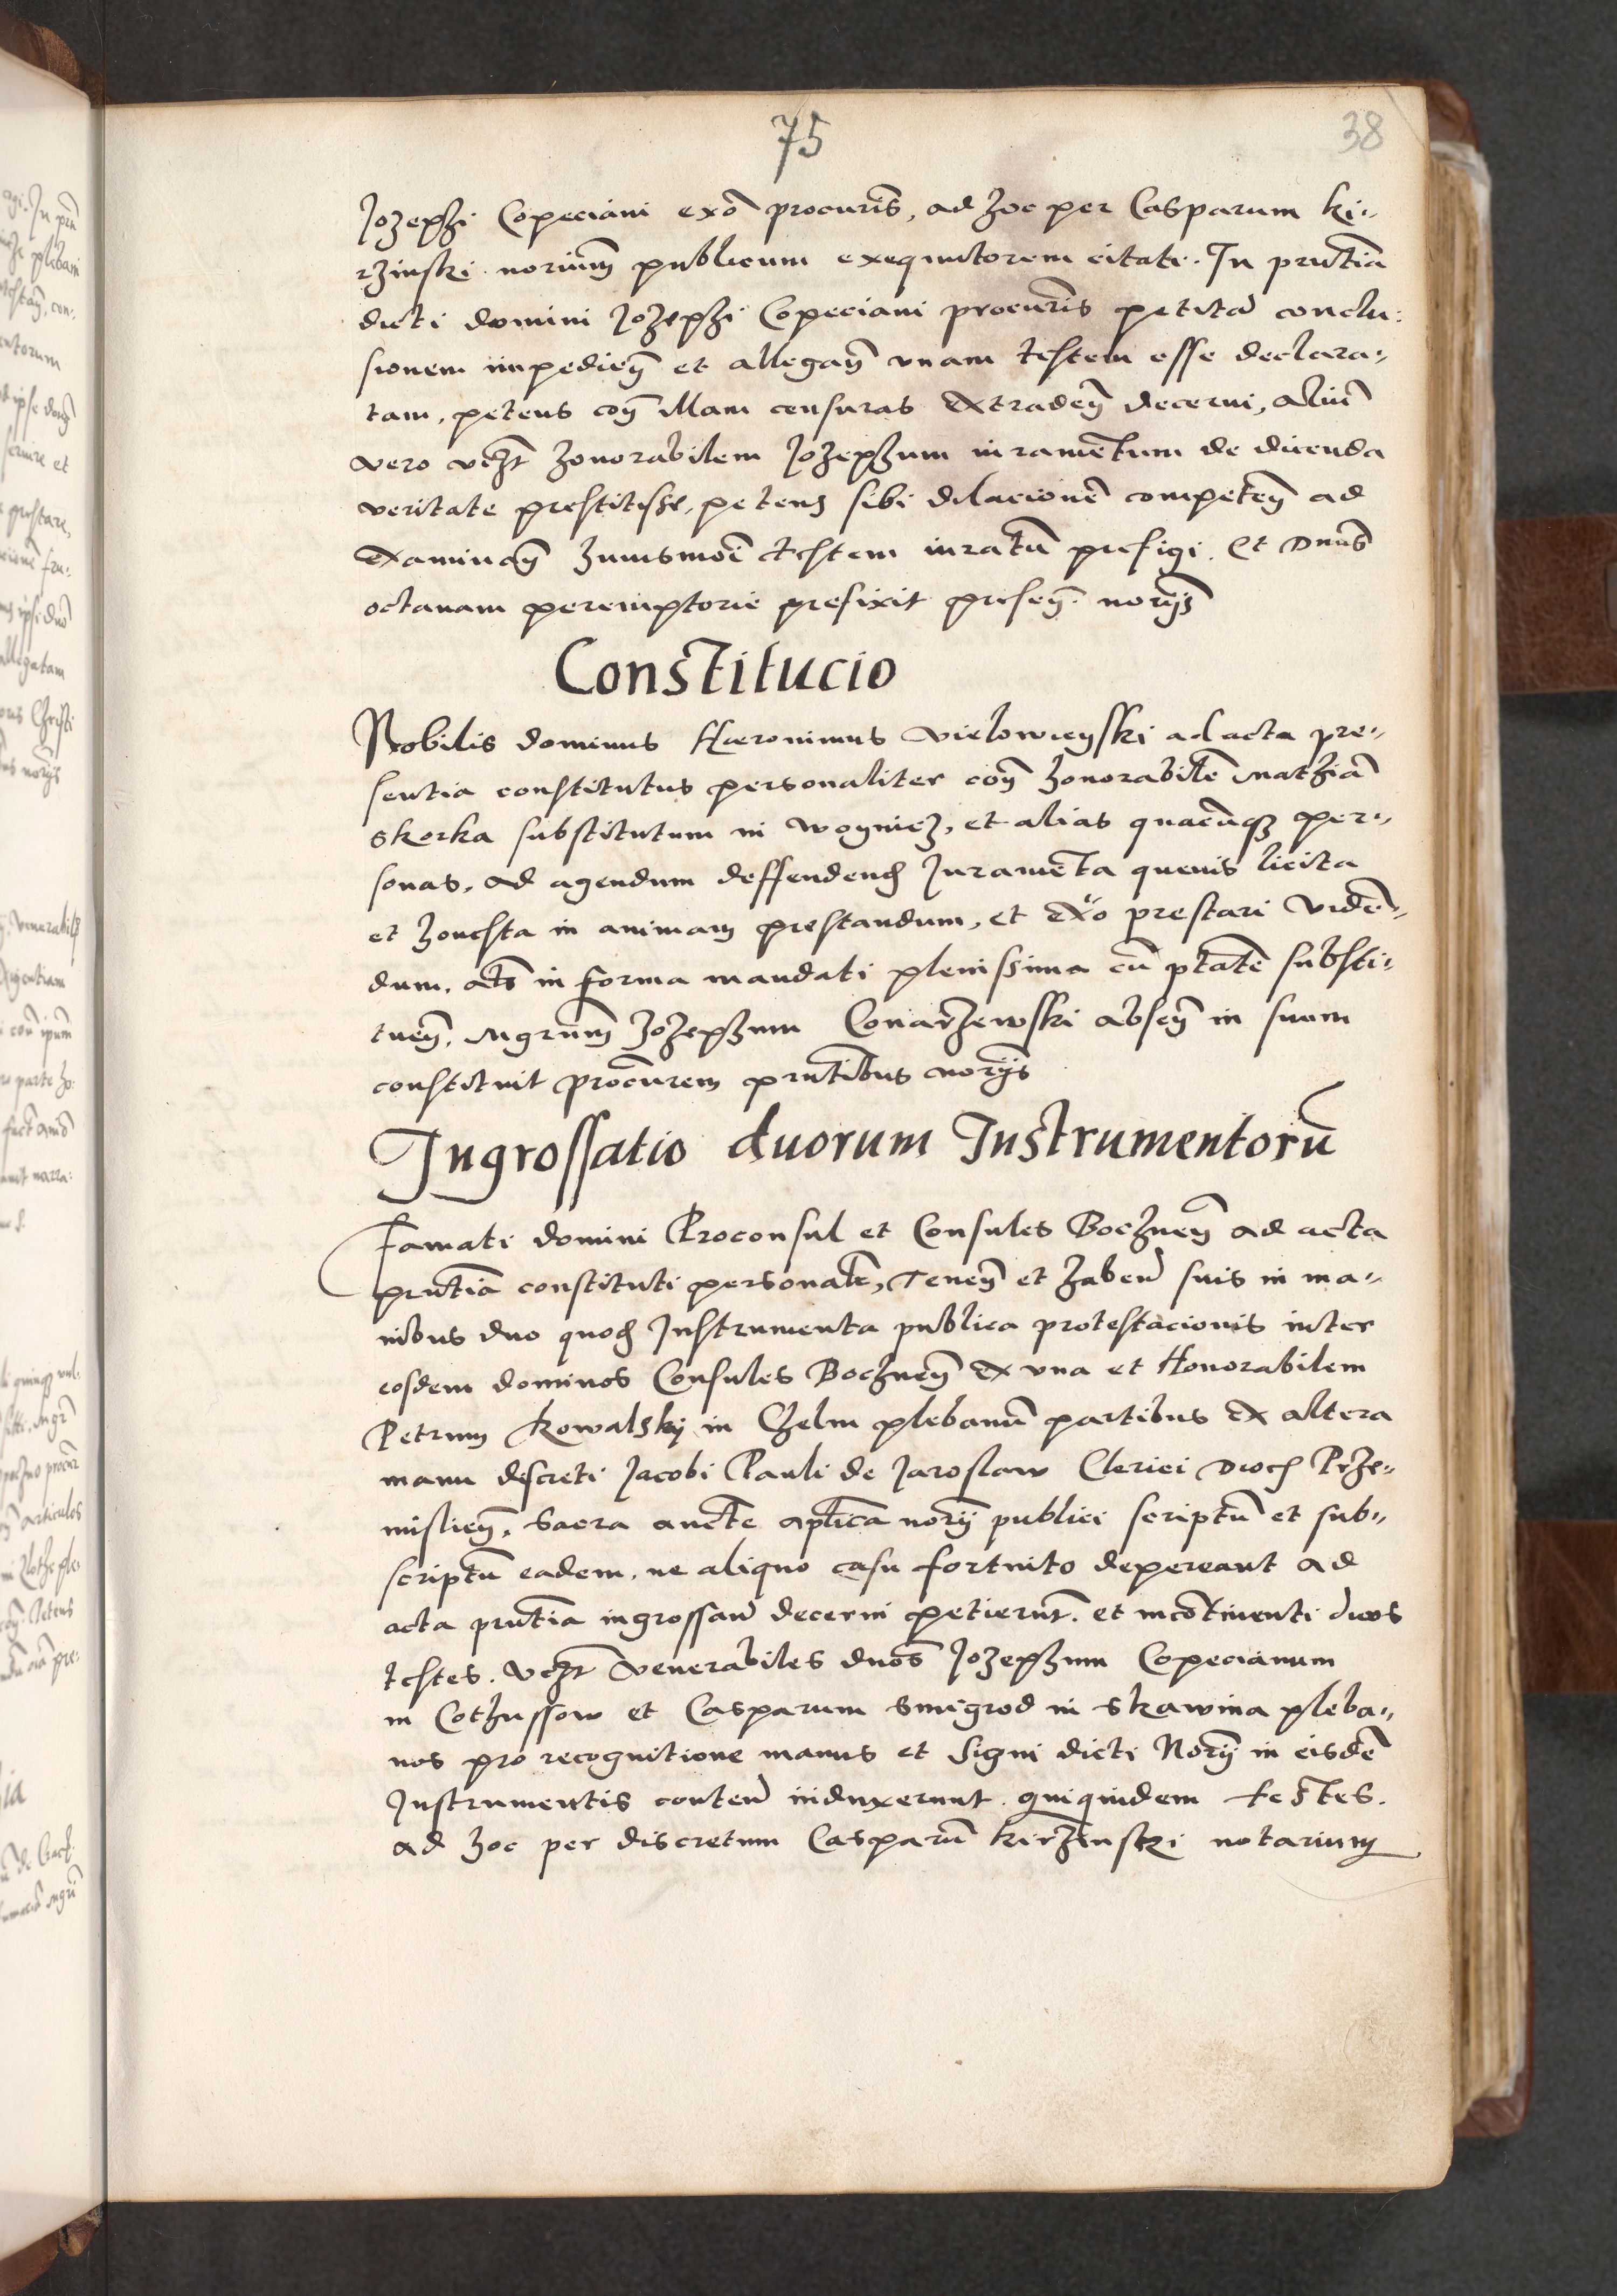 75
38
Jozephi Copeciani exo͞ procuris͞, ad hoc per Casparum ki=
rzinski norium͞ publicum exequutorem citati. In prn͞tia
dicti domini Jozephi Copeciani procuris͞ petita conclu:
sionem impedien͞ et allegan͞ vnam testem esse declara=
tam, petens con͞ illam censuras extraden͞ decerni, aliu͞
vero vczt͞ honorabilem Jozephum iurame͞tum de dicenda
veritate prestitisse, petens sibi dilacione͞ competen͞ ad
examinan͞ huiusmoi͞ testem iuratu͞ prefigi. Et Dnus͞
octauam peremptorie prefixit presen͞. norijs͞
Constitucio
Nobilis dominus Hieronimus Vielowieyski ad acta pre=
sentia constitutus personaliter con͞ honorabile͞ Mathia͞
Skorka substitutum in Woynicz, et alias quacu͞q3 per=
sonas, ad agendum deffendend Jurame͞ta queuis licita
et honesta in animam prestandum, et exo͞ prestari vide͞=
dum, als͞ in forma mandati plenissima cu͞ ptate͞ substi=
tuen͞, Mgrum͞ Jozephum Conarzewski absen͞ in suum
constituit procurem͞ prn͞tibus norijs͞
Ingrossatio duorum Instrumentoru͞
Famati domini Proconsul et Consules Bochnen͞ ad acta
prn͞tia constituti personal͞r, Tenen͞ et haben͞ suis in ma=
nibus duo quod Instrumenta publica protestacionis inter
eosdem dominos Consules Bochnen͞ ex vna et Honorabilem
Petrum Kowalsky in Chelm plebanu͞ partibus ex altera
manu discreti Jacobi Pauli de Jaroslaw Clerici Dioc Prze=
mislien͞, Sacra aucte͞ aplica͞ norij͞ publici scriptu͞ et sub=
scriptu͞ eadem, ne aliquo casu fortuito depereant ad
acta prn͞tia ingrossan͞ decerni petierunt͞. et inco͞tinenti duos
testes. vczt͞ venerabiles dnos͞ Jozephum Copecianum
in Cothussow et Casparum Smigrod in Skawina pleba=
nos pro recognitione manus et Signi dicti Norij͞ in eisde͞
Instrumentis conten͞ induxerunt. quiquidem testes.
ad hoc per discretum Casparu͞ kirzinski notarium